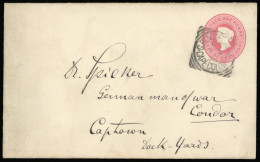 Dr. Spieker
German man of war
Condor
Captown
Dock-Yards.